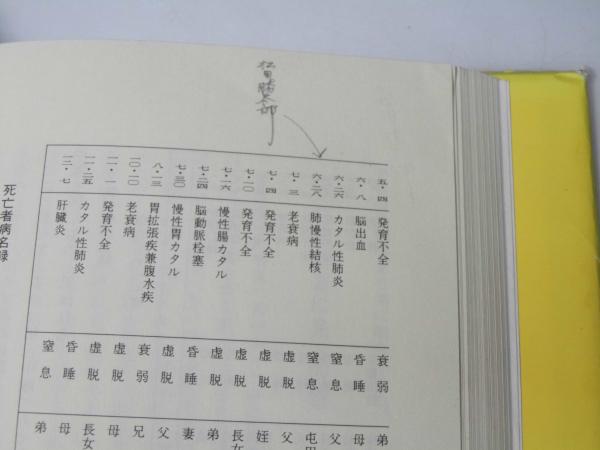 松田勝太郎
五・四 発育不全 衰弱 弟
六・八 脳出血 昏睡 母
六・二六 カタル性肺炎 窒息 父
六・二八 肺慢性結核 窒息 屯田
七・三 老衰病 虚脱 父
七・四 発育不全 虚脱 姪
七・一〇 発育不全 虚脱 長女
七・一六 慢性腸カタル 虚脱 弟
七・二四 脳動脈栓塞 昏睡 妻
七・三〇 慢性胃カタル 虚脱 父
八・一三 胃拡張疾兼腹水疾 衰弱 兄
一〇・一〇 老衰病 虚脱 母
一一・一 発育不全 虚脱 長女
一一・二五 カタル性肺炎 昏睡 母
一二・七 肝臓炎 窒息 弟
死亡者病名録